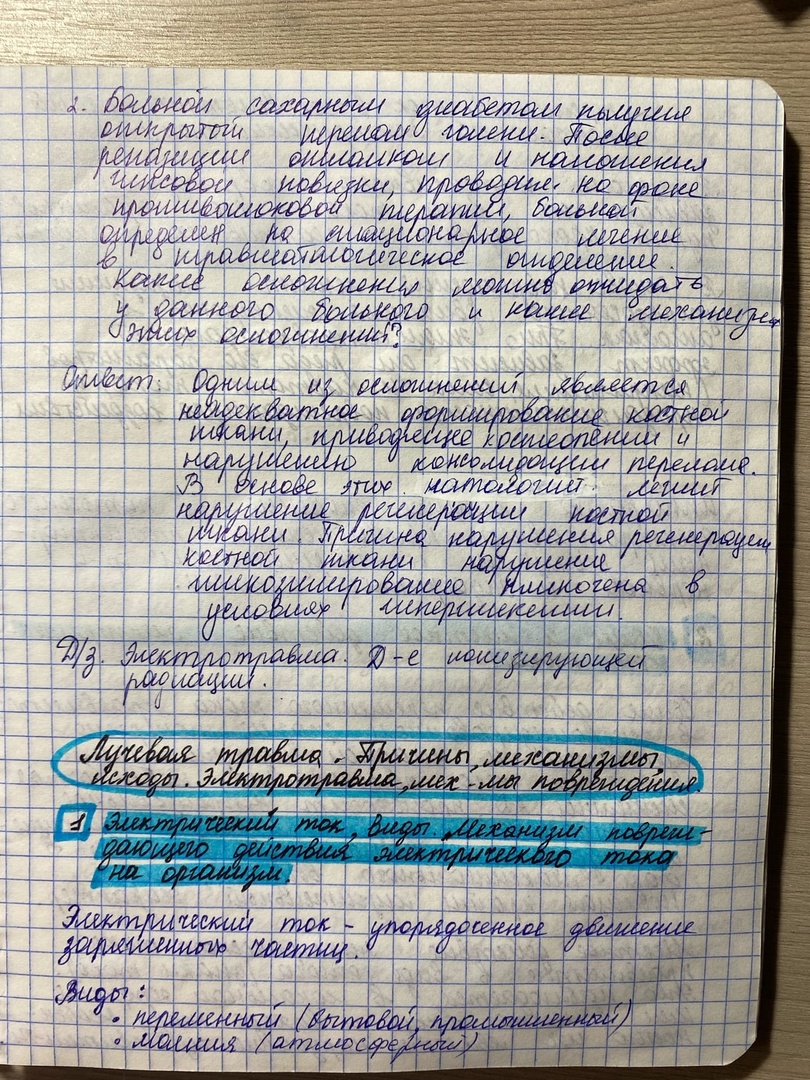 2. Больной сахарным диабетом получил
открытый перелом голени. После
репозиции отломков и наложения
гипсовой повязки, проводим. на фоне
противошоковой терапии, больной
определен на стационарное лечение
в травматологическое отделение.
Какие осложнения можно ожидать
у данного больного и какие механизмы
этих осложнений?
Ответ: Одним из осложнений является
неадекватное формирование костной
ткани, приводящее к остеопении и
нарушению консолидации перелома.
В основе этих патологий лежит
нарушение регенерации костной
ткани. Причина нарушения регенерации
костной ткани нарушение
гликозилирование в
условиях гипергликемии.
Д/з. Электротравма. Д-е ионизирующей
радиации.
Лучевая травма. Причины, механизмы,
исходы. Электротравма, мех-мы повреждения.
1. Электрический ток, виды. Механизм повреж-
дающего действия электрического тока
на организм.
Электрический ток - упорядоченное движение
заряженных частиц.
Виды:
• переменный (бытовой, промышленный)
• молния (атмосферный)